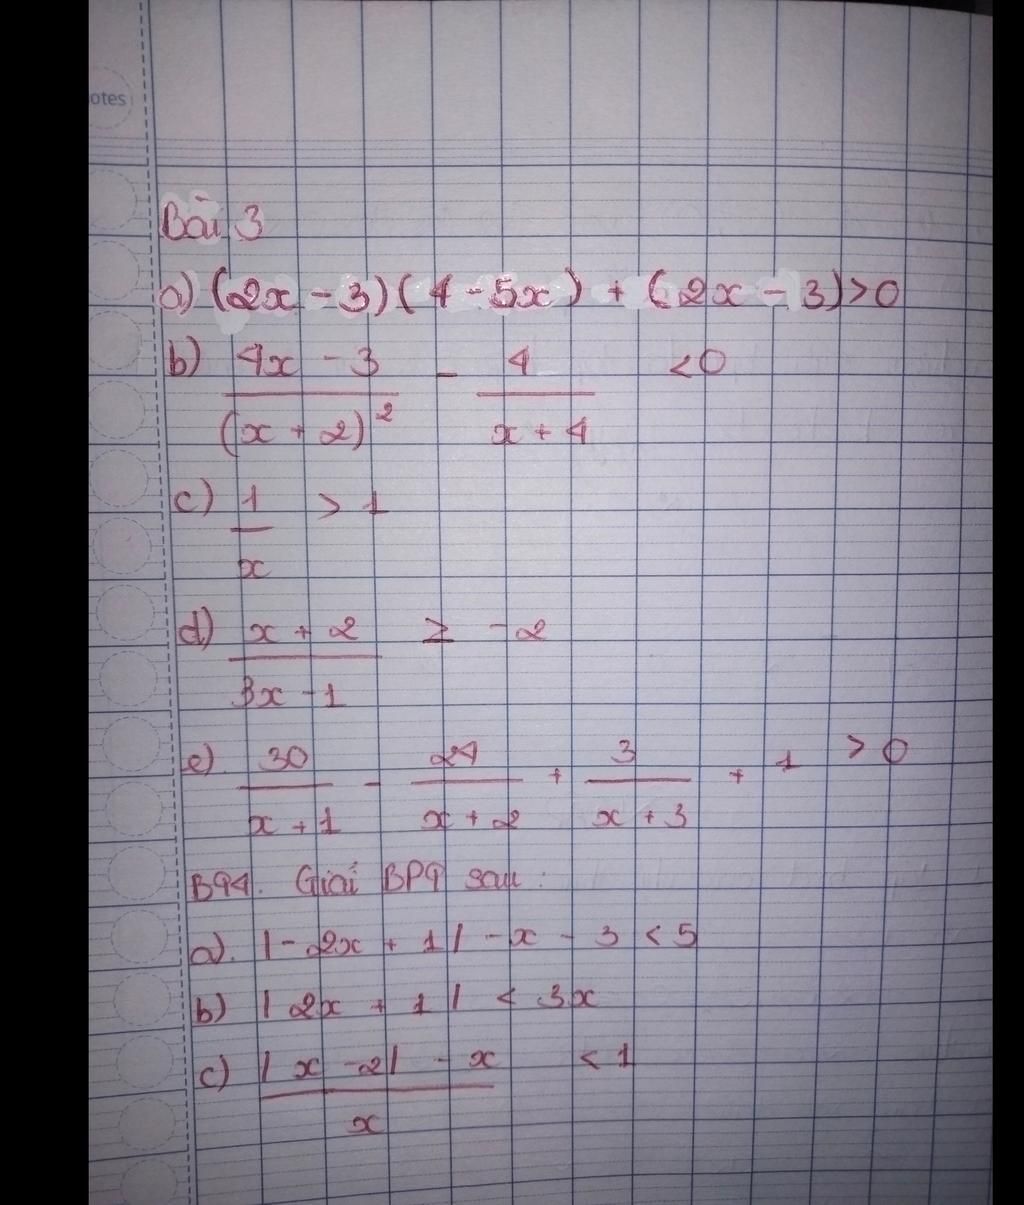 otes
Bài 3
a) (2x - 3)(4 - 5x) + (2x - 3) > 0
b) \frac{4x - 3}{(x + 2)^2} - \frac{4}{x + 4} < 0
c) \frac{1}{x} > 1
d) \frac{x + 2}{3x - 1} ≥ -2
e) \frac{30}{x + 1} - \frac{24}{x + 2} + \frac{3}{x + 3} + 1 > 0
B94. Giải BPT sau:
a). |-2x + 1| - x - 3 < 5
b) |2x + 1| < 3x
c) \frac{|x - 2| - x}{x} < 1